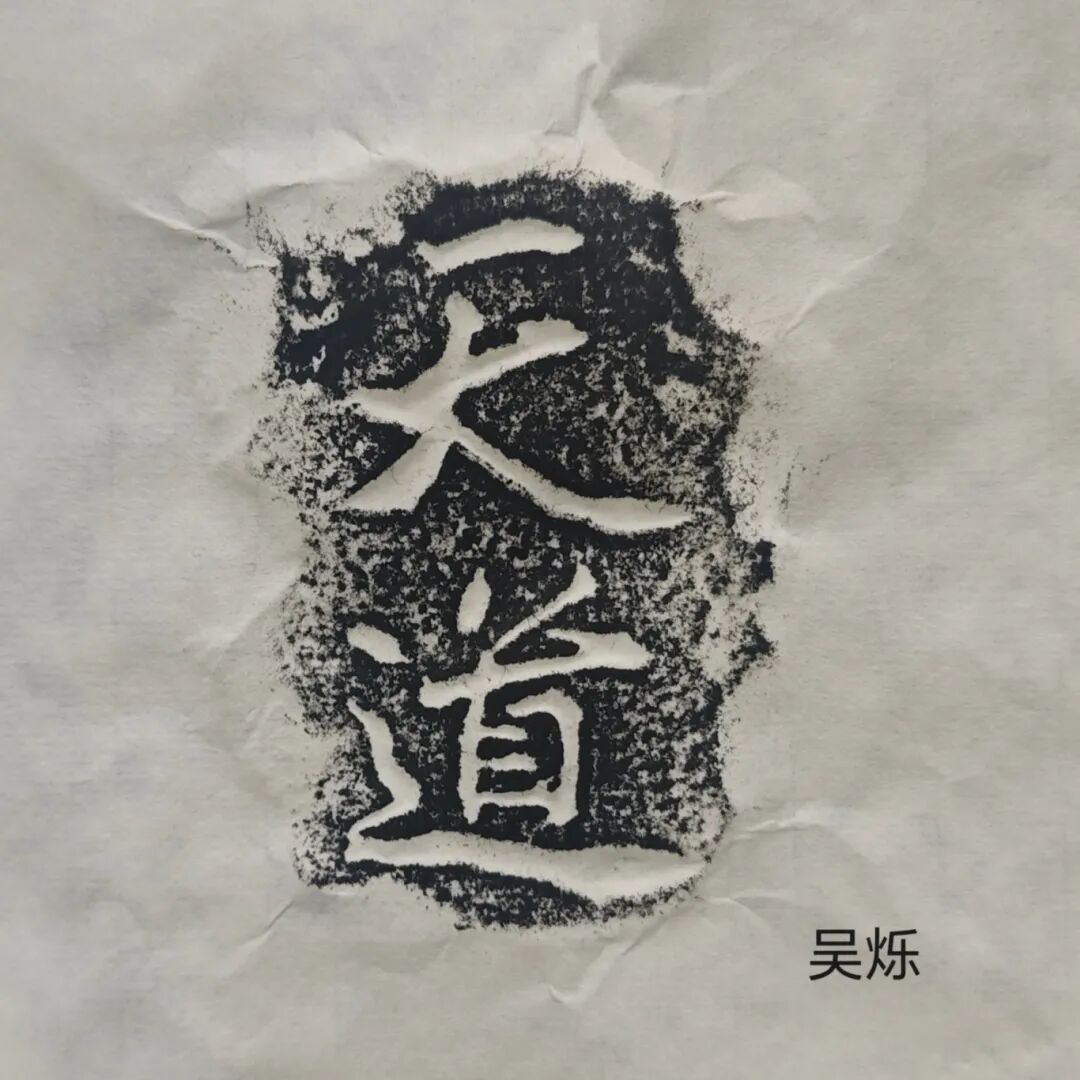 天道
吴烁